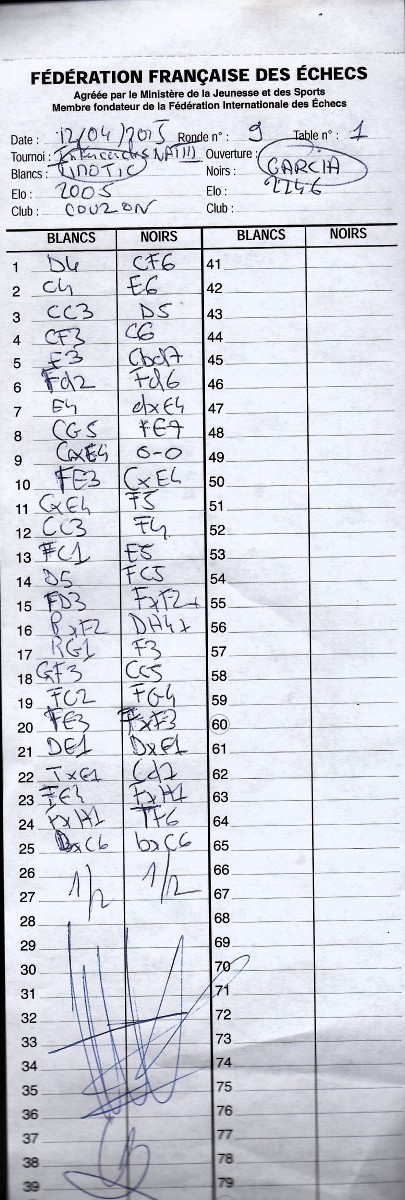 FÉDÉRATION FRANÇAISE DES ÉCHECS
Agréée par le Ministère de la Jeunesse et des Sports
Membre fondateur de la Fédération Internationale des Échecs
Date : 12/04/2015 Ronde n° : 9 Table n° : 1
Tournoi : Ouverture :
Blancs : Noirs : GARCIA
Elo : 2005 Elo : 2246
Club : COUZON Club :
BLANCS NOIRS BLANCS NOIRS
1 D4 CF6 41
2 C4 E6 42
3 CC3 D5 43
4 CF3 C6 44
5 E3 Cbd7 45
6 Fd2 Fd6 46
7 E4 dxE4 47
8 CG5 FE7 48
9 CxE4 0-0 49
10 FE3 CxE4 50
11 CxE4 F5 51
12 CC3 F4 52
13 FC1 E5 53
14 D5 FC5 54
15 FD3 FxF2+ 55
16 RxF2 DH4+ 56
17 RG1 F3 57
18 GF3 CC5 58
19 FC2 FG4 59
20 FE3 FxF3 60
21 DE1 DxE1 61
22 TxE1 Cd7 62
23 FE4 FxH1 63
24 FxH1 TF6 64
25 BxC6 bxC6 65
26 1/2 1/2 66
27 67
28 68
29 69
30 70
31 71
32 72
33 73
34 74
35 75
36 76
37 77
38 78
39 79